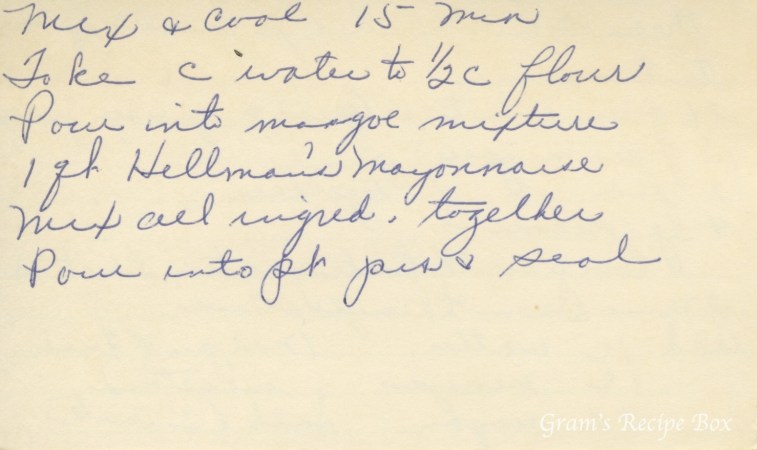 Mix & cool 15 min
Take c water to 1/2 c flour
Pour into mangoe mixture
1 qt Hellman's Mayonnaise
Mix all ingred. together
Pour into pt jars & seal
Gram's Recipe Box